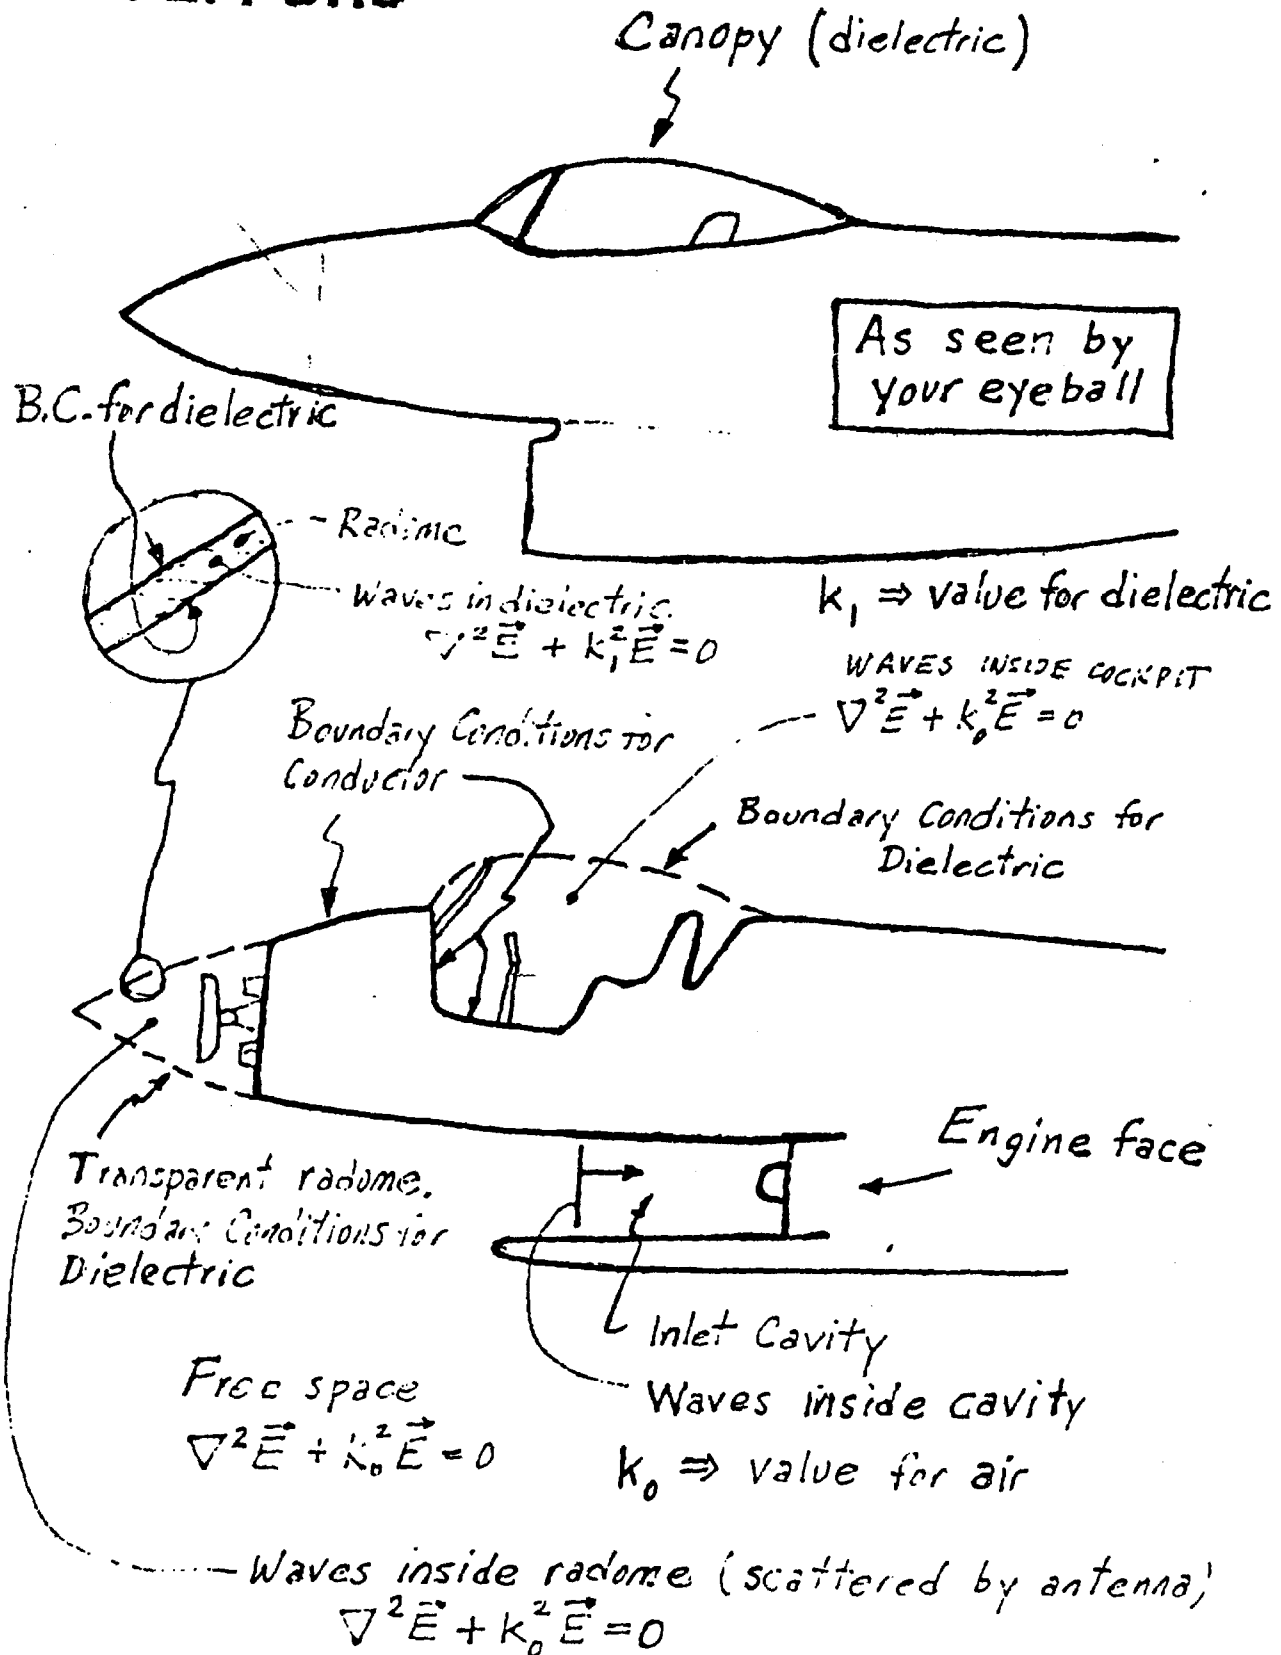 Canopy (dielectric)
As seen by
your eyeball
B.C. for dielectric
Radome
Waves in dielectric.
∇²E⃗ + k₁²E⃗ = 0
k₁ ⇒ value for dielectric
WAVES INSIDE COCKPIT
∇²E⃗ + k₀²E⃗ = 0
Boundary Conditions for
Conductor
Boundary Conditions for
Dielectric
Engine face
Transparent radome.
Boundary Conditions for
Dielectric
Inlet Cavity
Free space
∇²E⃗ + k₀²E⃗ = 0
Waves inside cavity
k₀ ⇒ value for air
Waves inside radome (scattered by antenna)
∇²E⃗ + k₀²E⃗ = 0